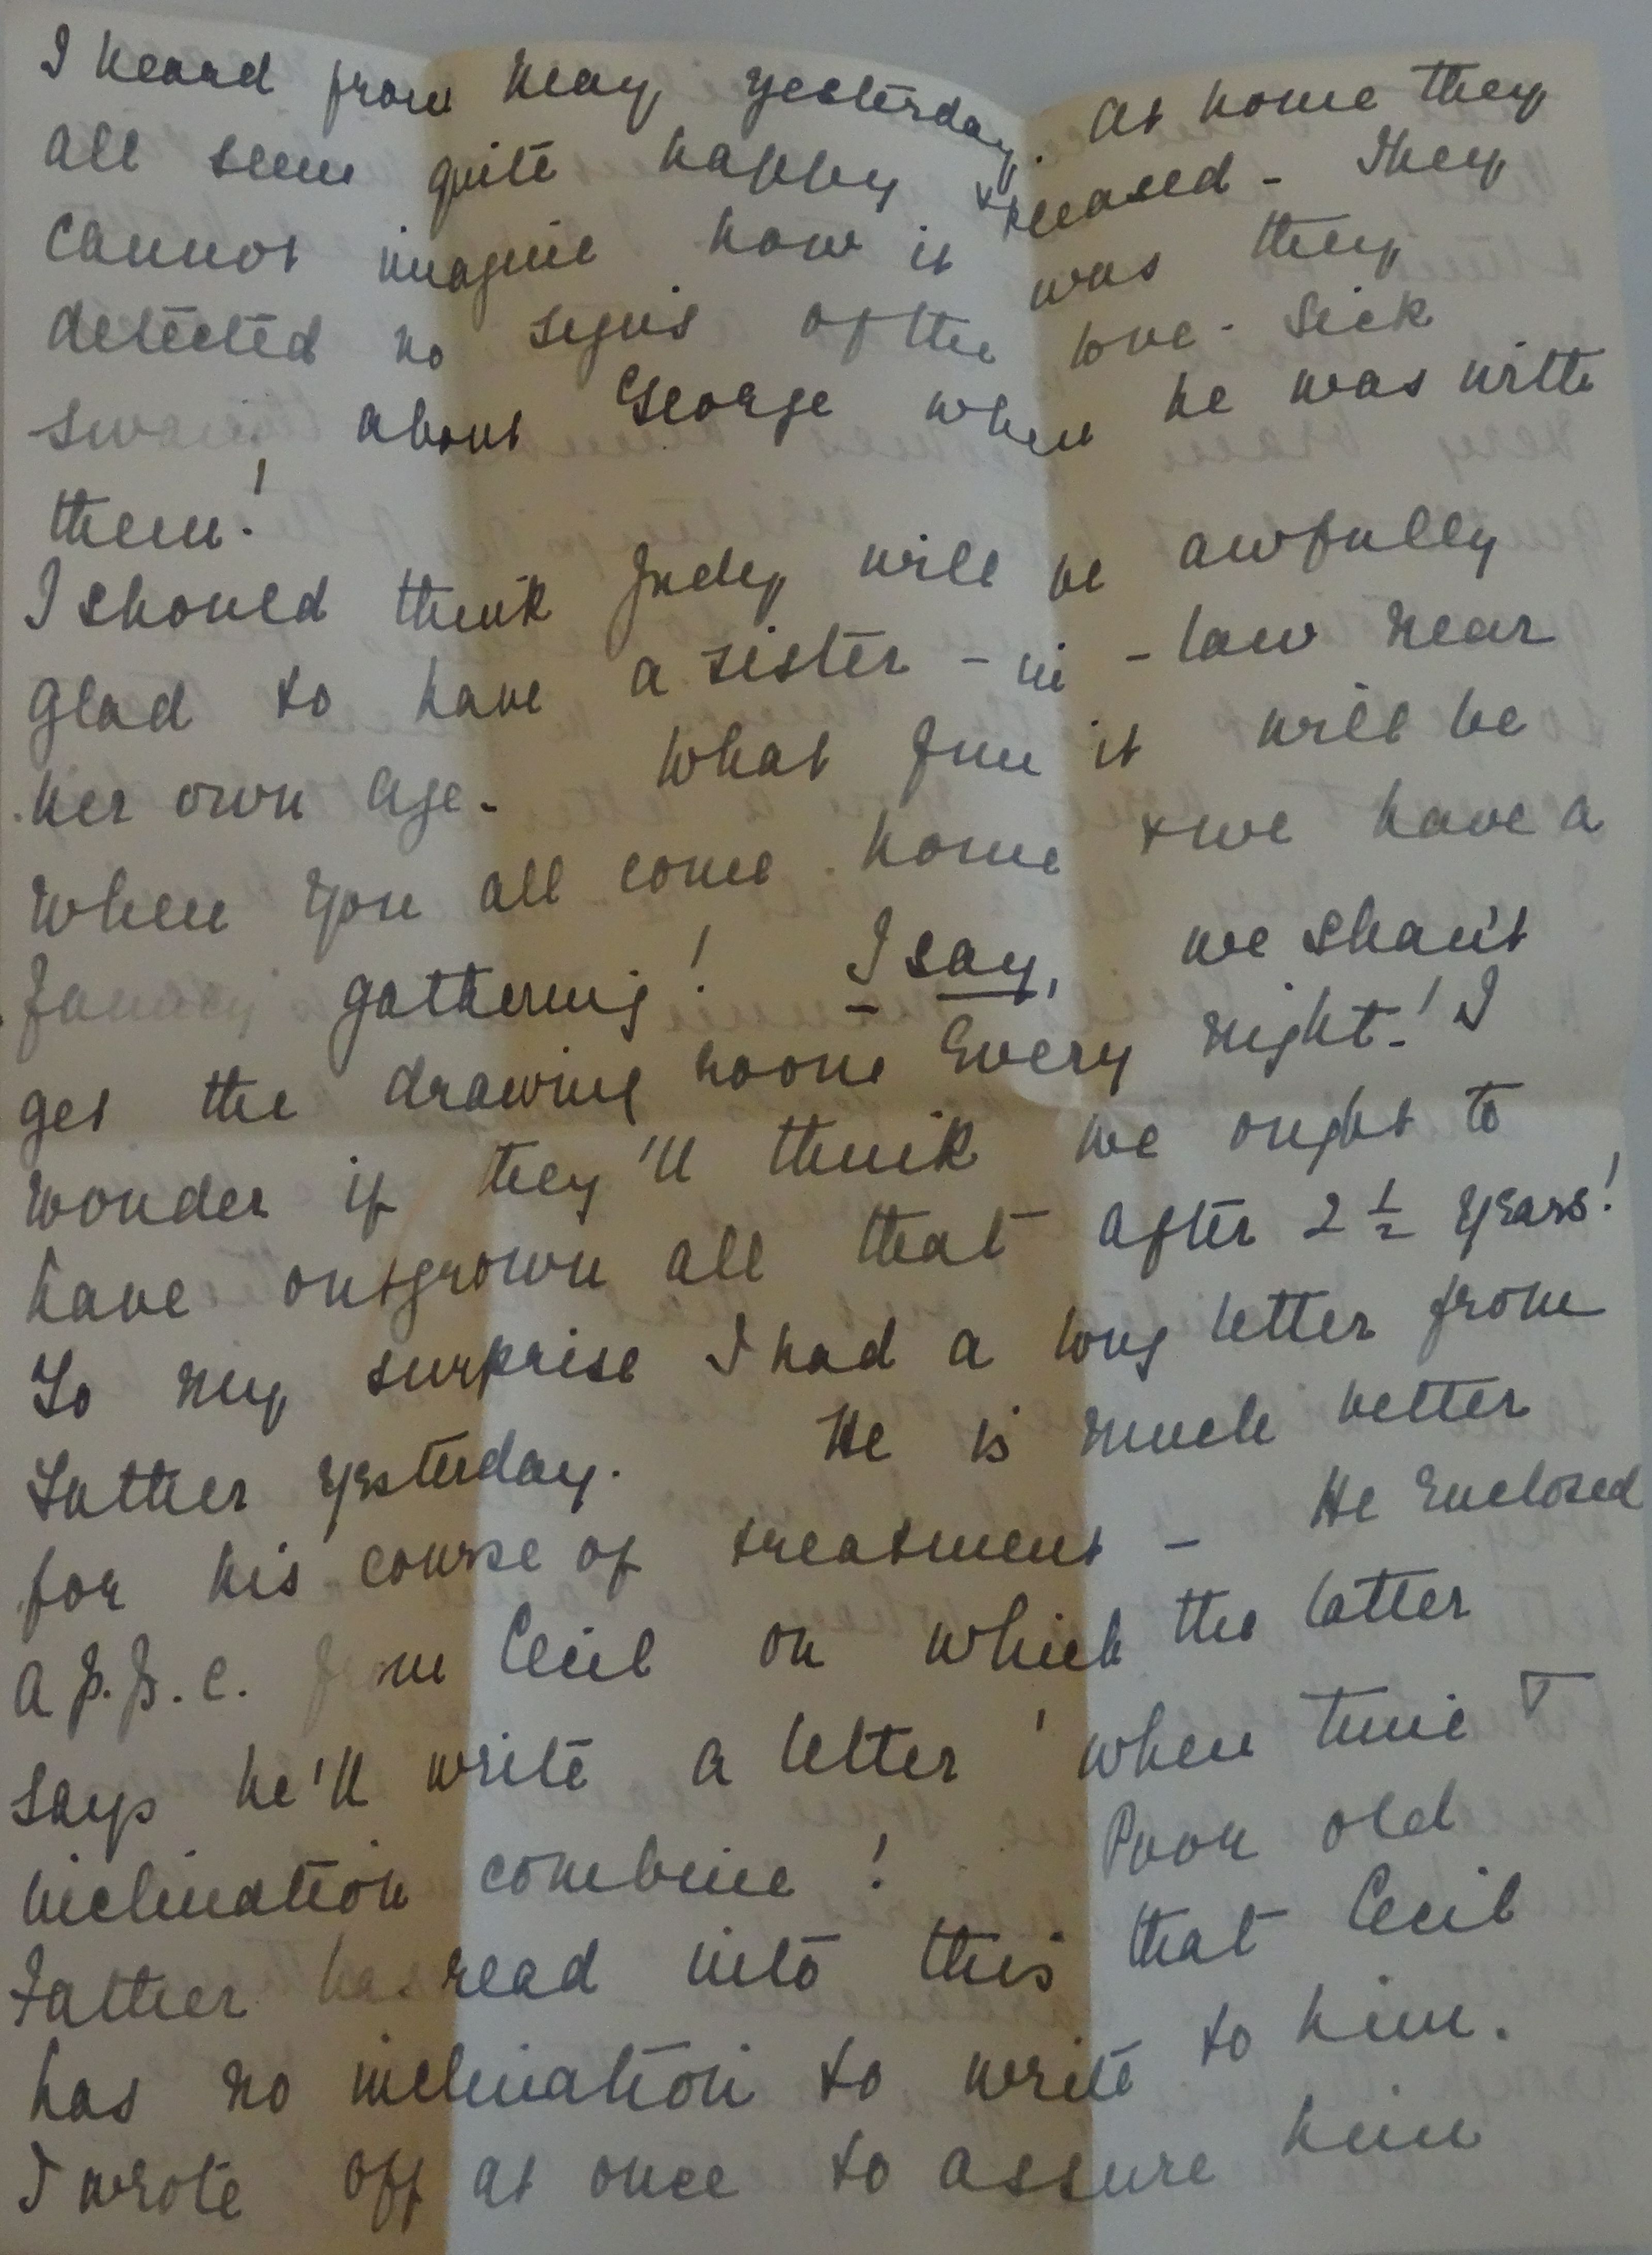 I heard from May yesterday. At home they
all seem quite happy & pleased - They
cannot imagine how it was they
detected no signs of the love-sick
swain about George when he was with
them!
I should think Judy will be awfully
glad to have a sister-in-law near
her own age. What fun it will be
when you all come home & we have a
family gathering! I say, we shan't
get the drawing room every night! I
wonder if they'll think we ought to
have outgrown all that after 2½ years!
To my surprise I had a long letter from
Father yesterday. He is much better
for his course of treatment - He enclosed
a p.p.c. from Cecil on which the latter
says he'll write a letter 'when time &
inclination combine! Poor old
Father has read into this that Cecil
has no inclination to write to him.
I wrote off at once to assure him